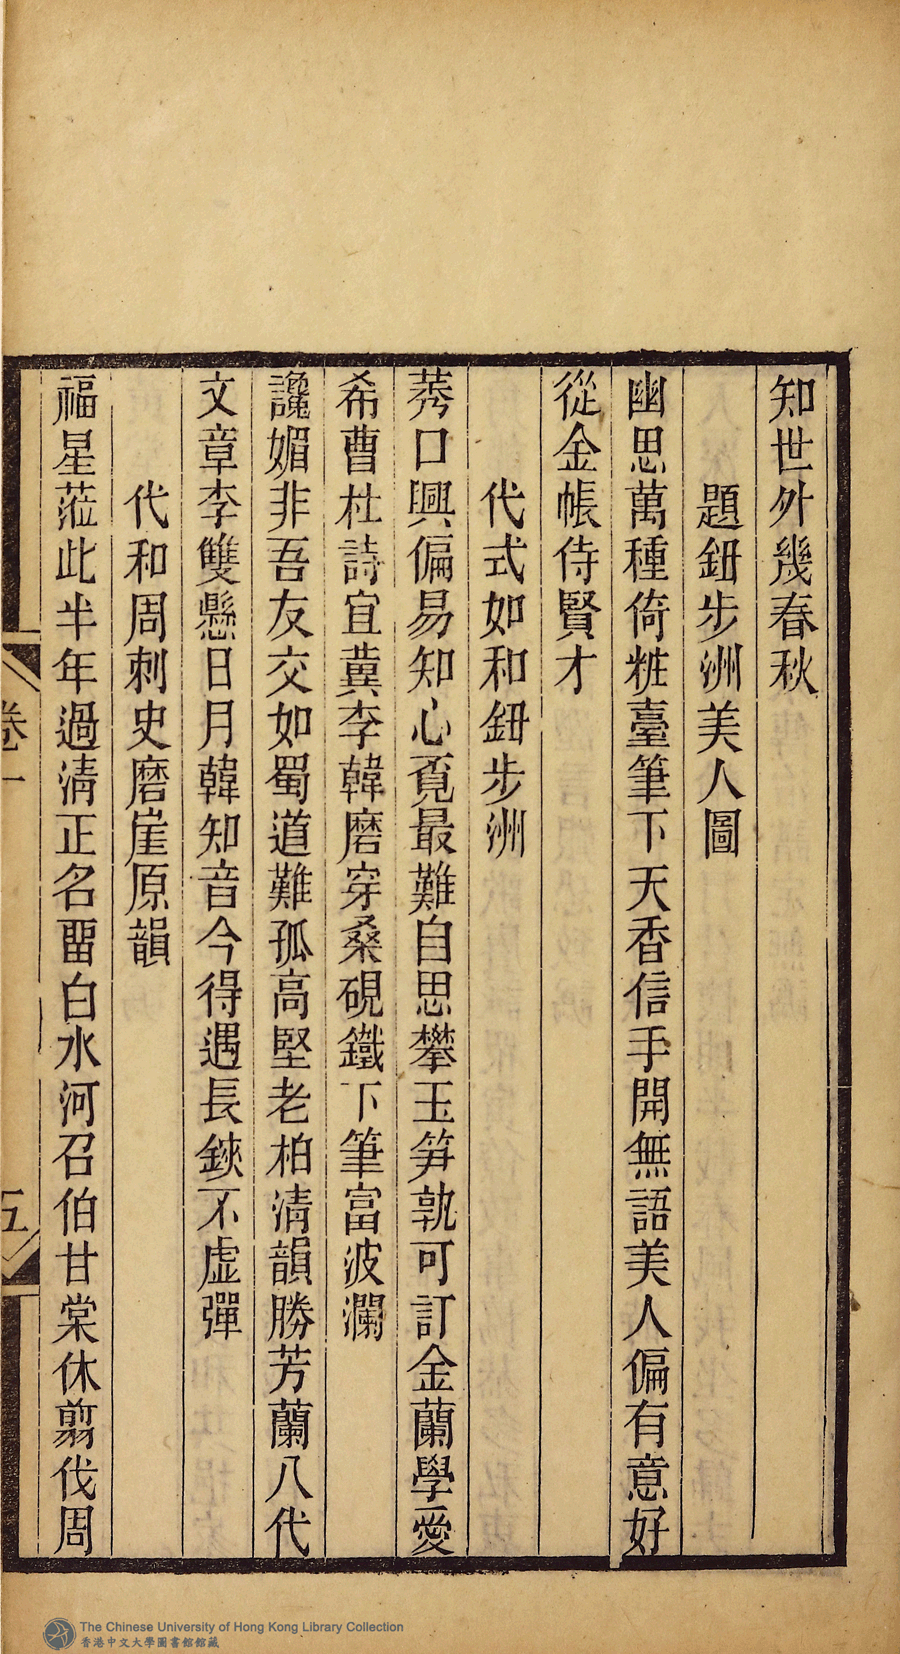 知世外幾春秋
題鈕步洲美人圖
幽思萬種倚粧臺筆下天香信手開無語美人偏有意好
從金帳侍賢才
代式如和鈕步洲
莠口興偏易知心覔最難自思攀玉笋孰可訂金蘭學愛
希曹杜詩宜冀李韓磨穿桑硯鐵下筆富波瀾
讒媚非吾友交如蜀道難孤高堅老柏清韻勝芳蘭八代
文章李雙懸日月韓知音今得遇長鋏不虛彈
代和周刺史磨崖原韻
福星蒞此半年過清正名畱白水河召伯甘棠休翦伐周
卷一
五
The Chinese University of Hong Kong Library Collection
香港中文大學圖書館館藏